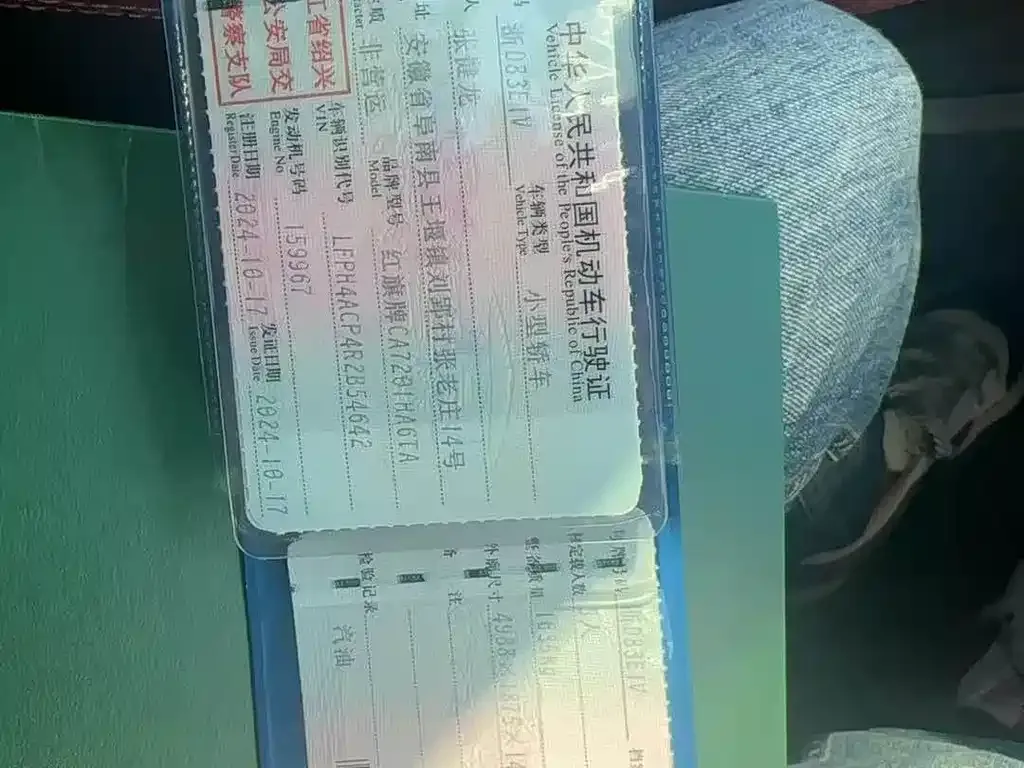 中华人民共和国机动车行驶证
Vehicle License of the People's Republic of China
浙D83E1V
车辆类型 小型轿车
Vehicle Type
人 张健龙
址 安徽省阜南县王堰镇刘郢村张老庄14号
质 非营运 品牌型号 红旗牌CA7201HA6TA
racter Model
江省绍兴
公安局交
警察支队
车辆识别代号 LFPH4ACP4R2B54642
VIN
发动机号码 159967
Engine No.
注册日期 2024-10-17 发证日期 2024-10-17
Register Date Issue Date
号牌号码
核定载人数 人
整备质量
外廓尺寸 4988×1875×14
备 注
检验记录
汽油